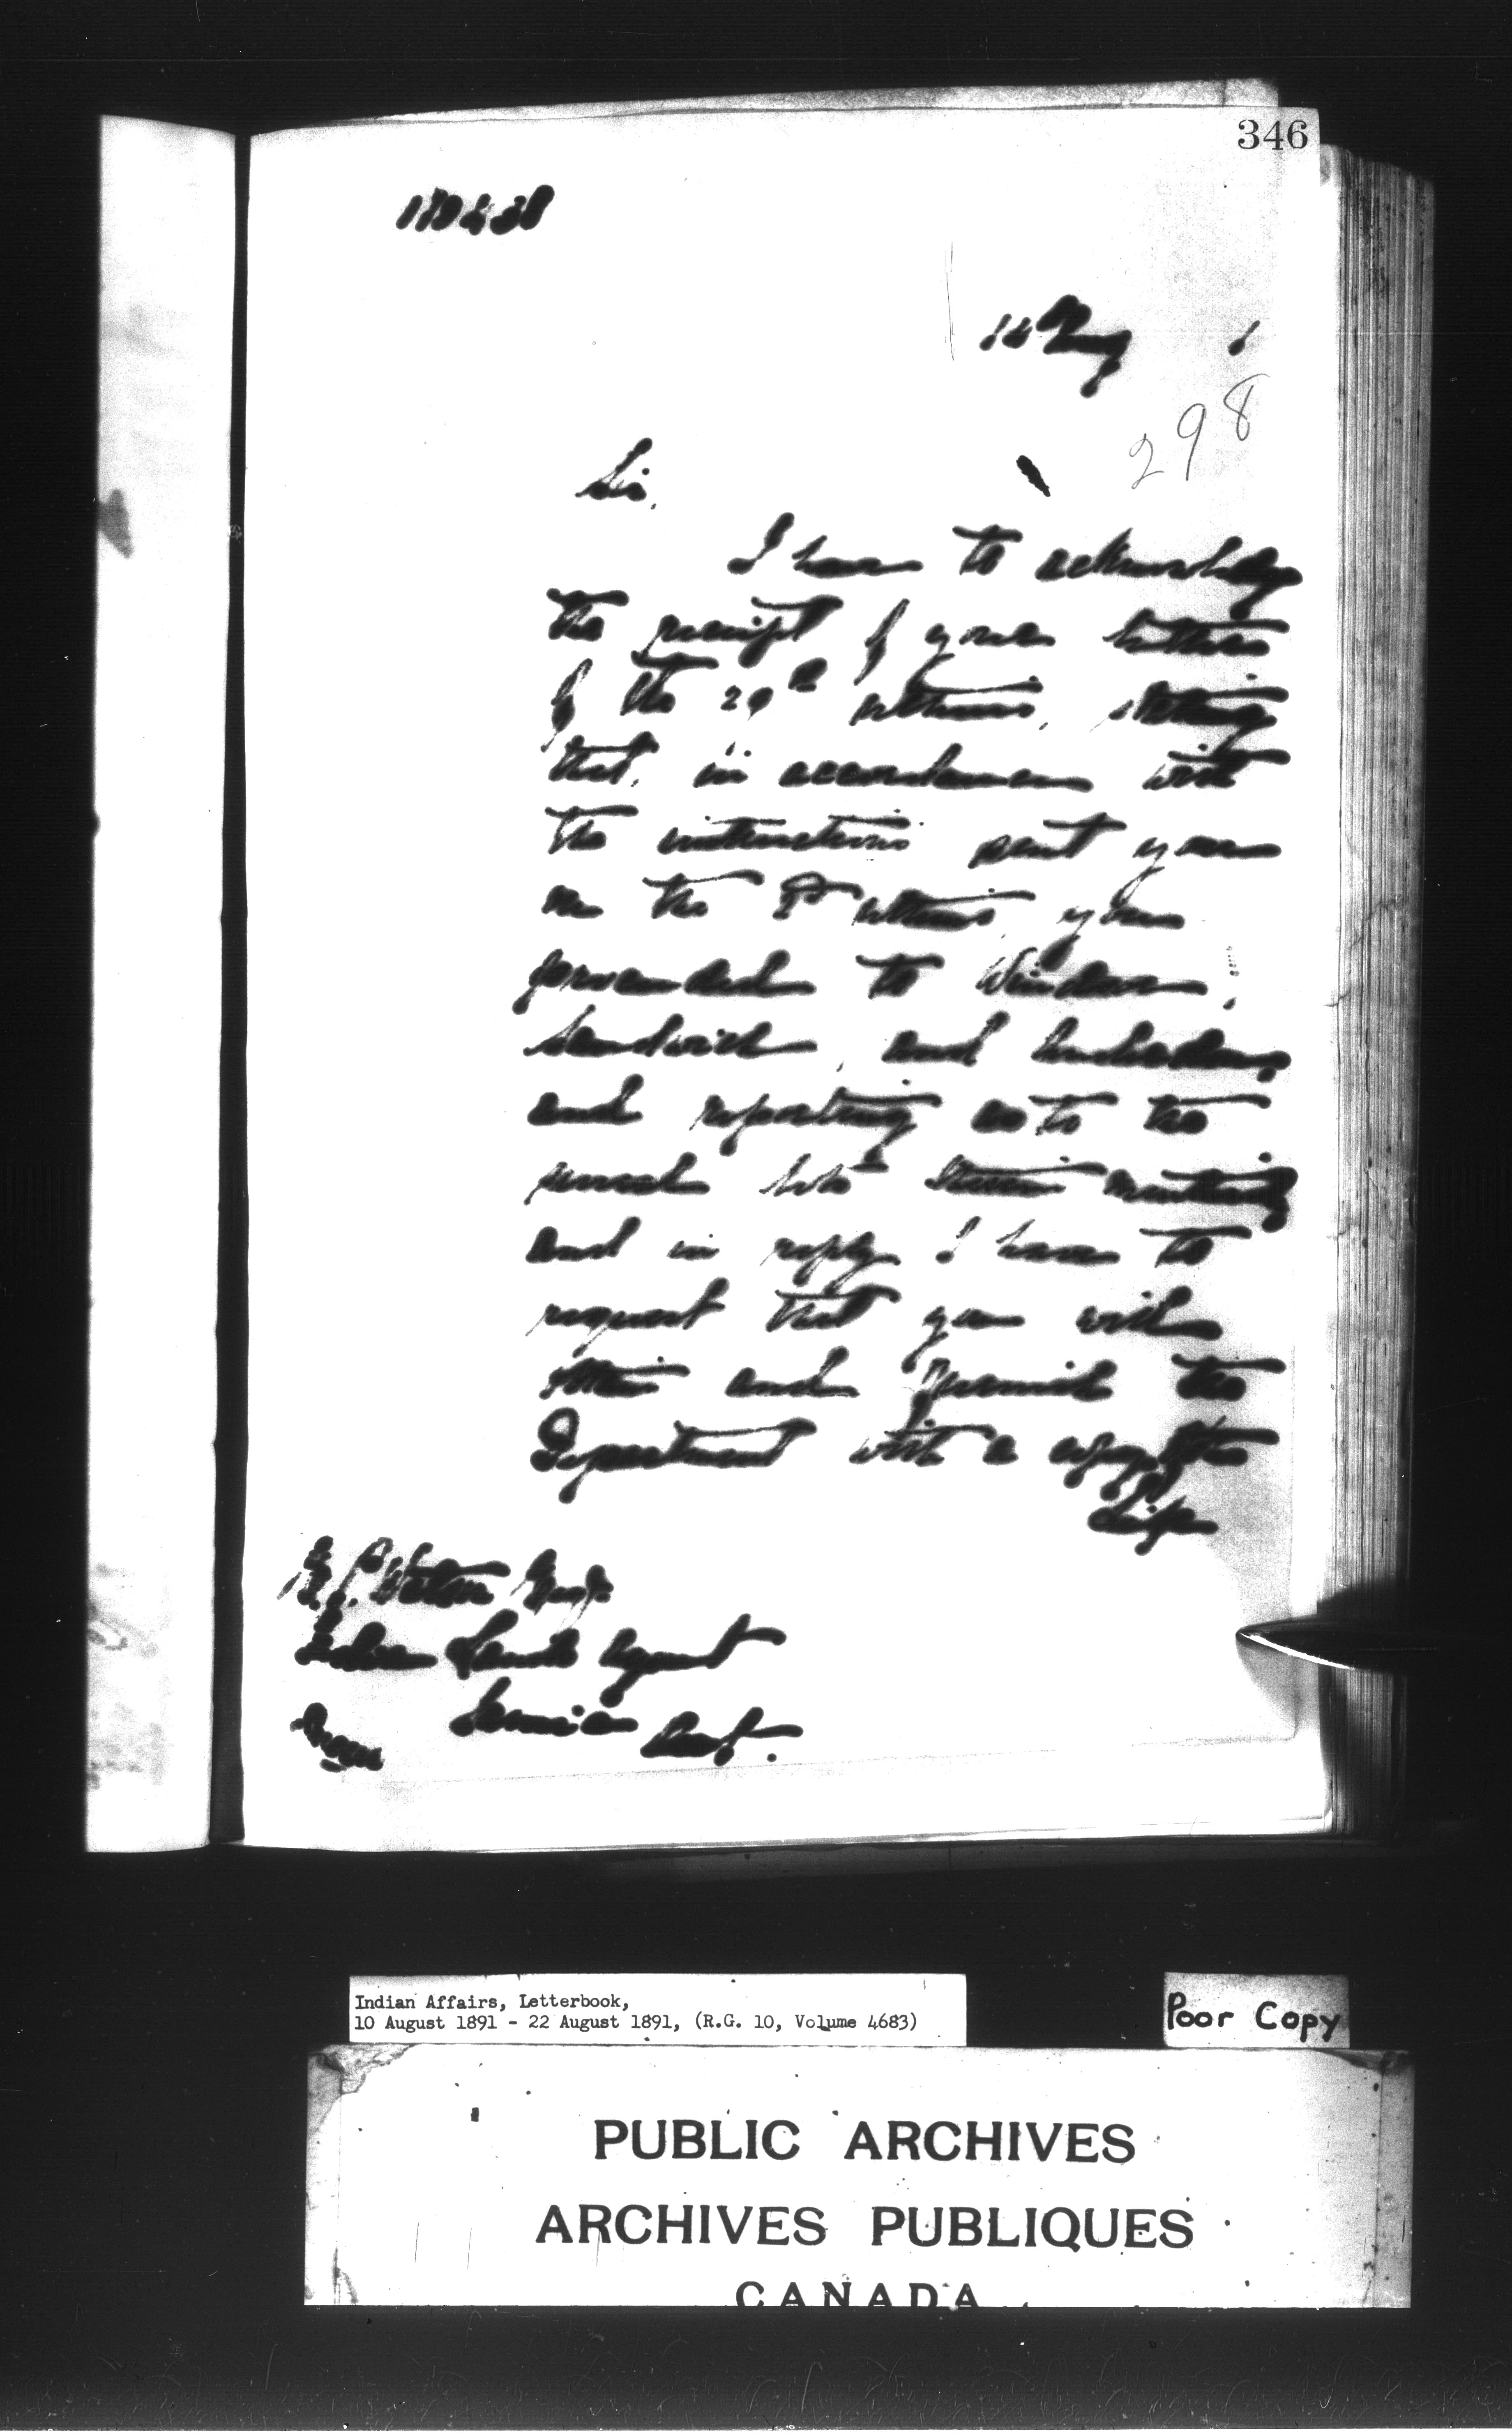 346
14 Aug 1
298
Sir,
I have to acknowledge
the receipt of your letter
of the 29th ultimo, stating
that, in accordance with
the instructions sent you
on the ultimo, you
proceeded to Windsor,
Sandwich, and Anderdon,
and reporting as to the
several lots therein mentioned
and in reply I have to
request that you will
obtain and furnish the
Department with a copy of the
E. Watson Esq.
Indian Lands Agent
Sarnia Ont.
Indian Affairs, Letterbook,
10 August 1891 - 22 August 1891, (R.G. 10, Volume 4683)
Poor Copy
PUBLIC ARCHIVES
ARCHIVES PUBLIQUES
CANADA